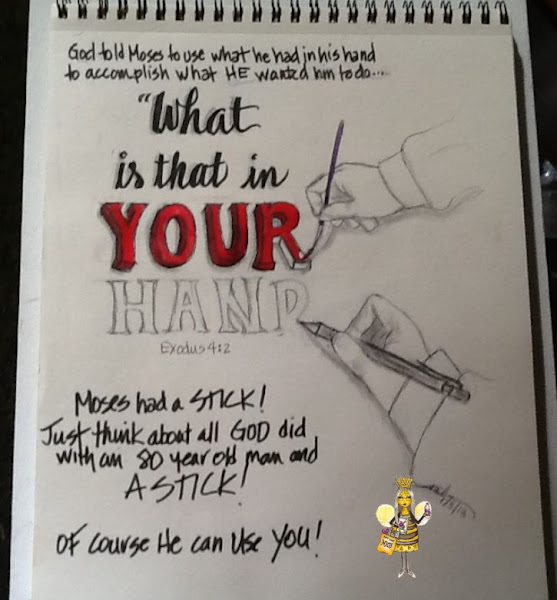 God told Moses to use what he had in his hand
to accomplish what HE wanted him to do...
"What
is that in
YOUR
HAND
Exodus 4:2
Moses had a STICK!
Just think about all GOD did
with an 80 year old man and
A STICK!
Of course He can use YOU!